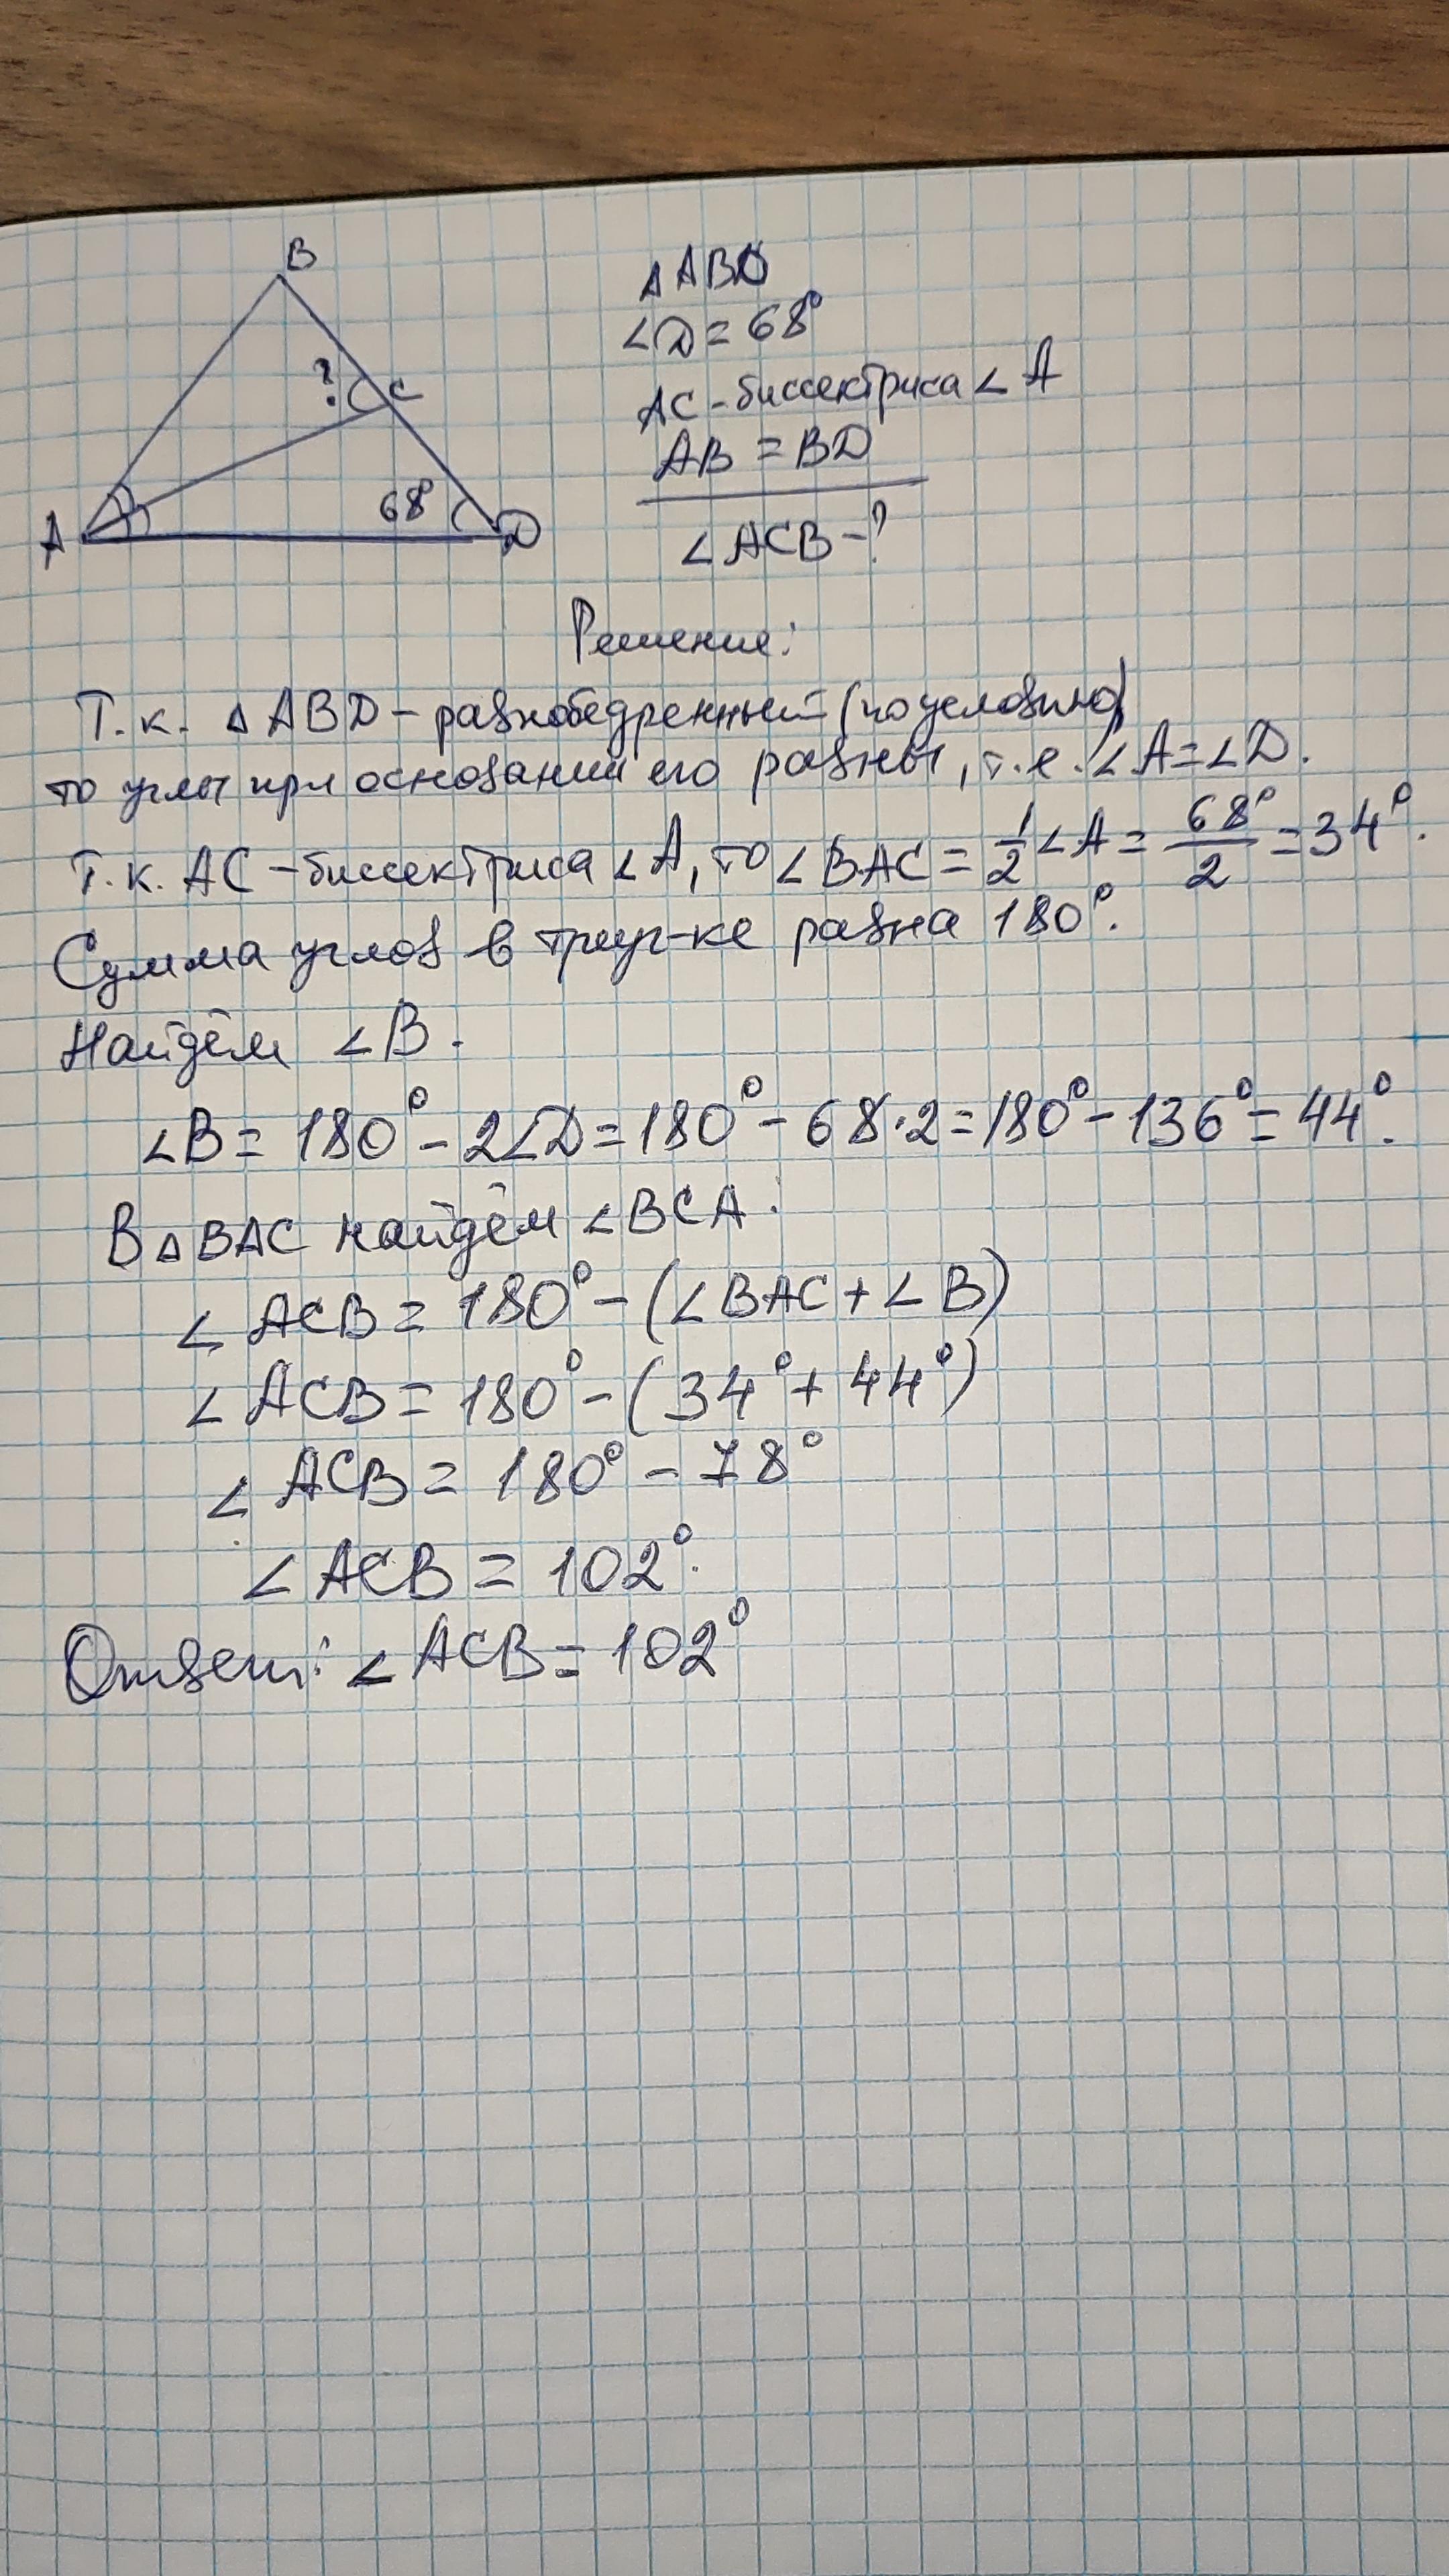 B
? C
A 68° D
△ABD
∠D = 68°
AC - биссектриса ∠A
AB = BD
∠ACB - ?
Решение:
Т.к. △ABD - равнобедренный (по условию)
то углы при основании его равны, т.е. ∠A = ∠D.
Т.к. AC - биссектриса ∠A, то ∠BAC = 1/2 ∠A = 68°/2 = 34°.
Сумма углов в треуг-ке равна 180°.
Найдём ∠B.
∠B = 180° - 2∠D = 180° - 68·2 = 180° - 136° = 44°.
В △BAC найдём ∠BCA.
∠ACB = 180° - (∠BAC + ∠B)
∠ACB = 180° - (34° + 44°)
∠ACB = 180° - 78°
∠ACB = 102°.
Ответ: ∠ACB = 102°